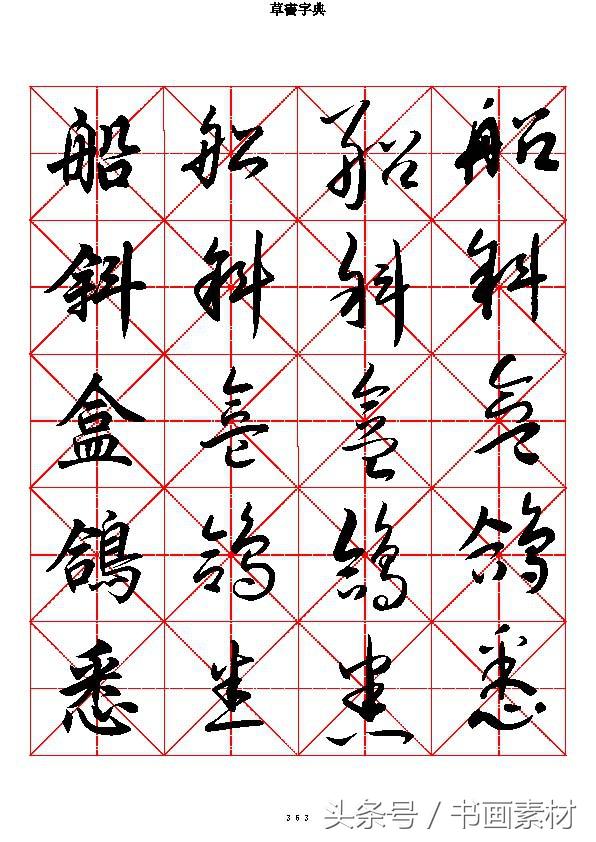 草書字典
船 船 船 船
斜 斜 斜 斜
盒 盒 盒 盒
鴿 鴿 鴿 鴿
悉 悉 悉 悉
363
头条号 / 书画素材